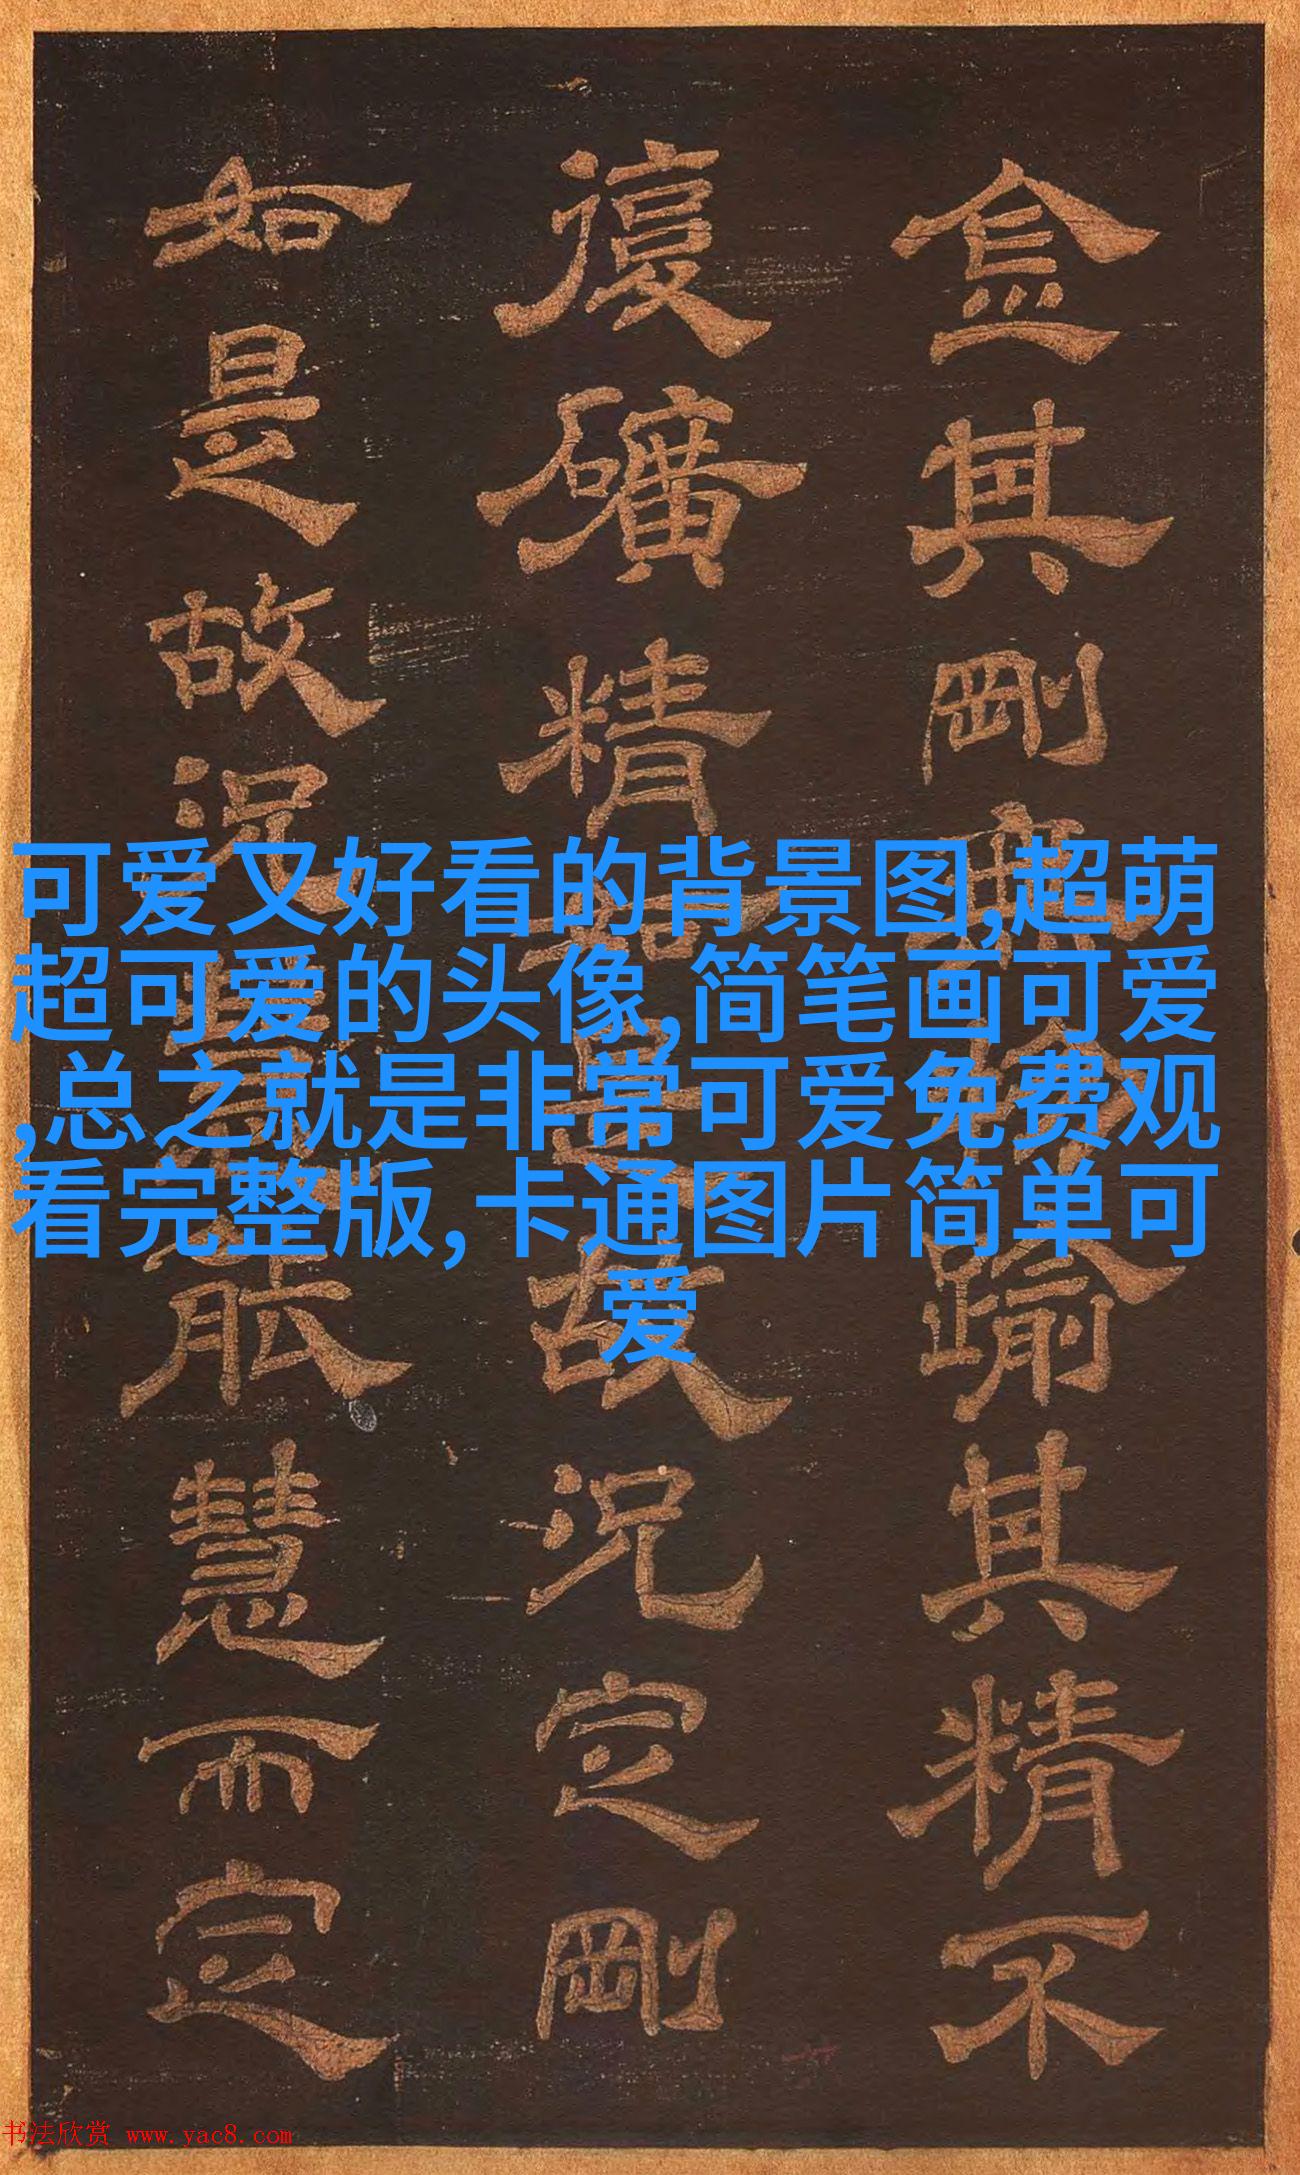 其剛踰其精不
復礦精故況定剛
如是故況能慧而定
可爱又好看的背景图,超萌
超可爱的头像,简笔画可爱
,总之就是非常可爱免费观
看完整版,卡通图片简单可
爱
书法欣赏 www.yac8.com